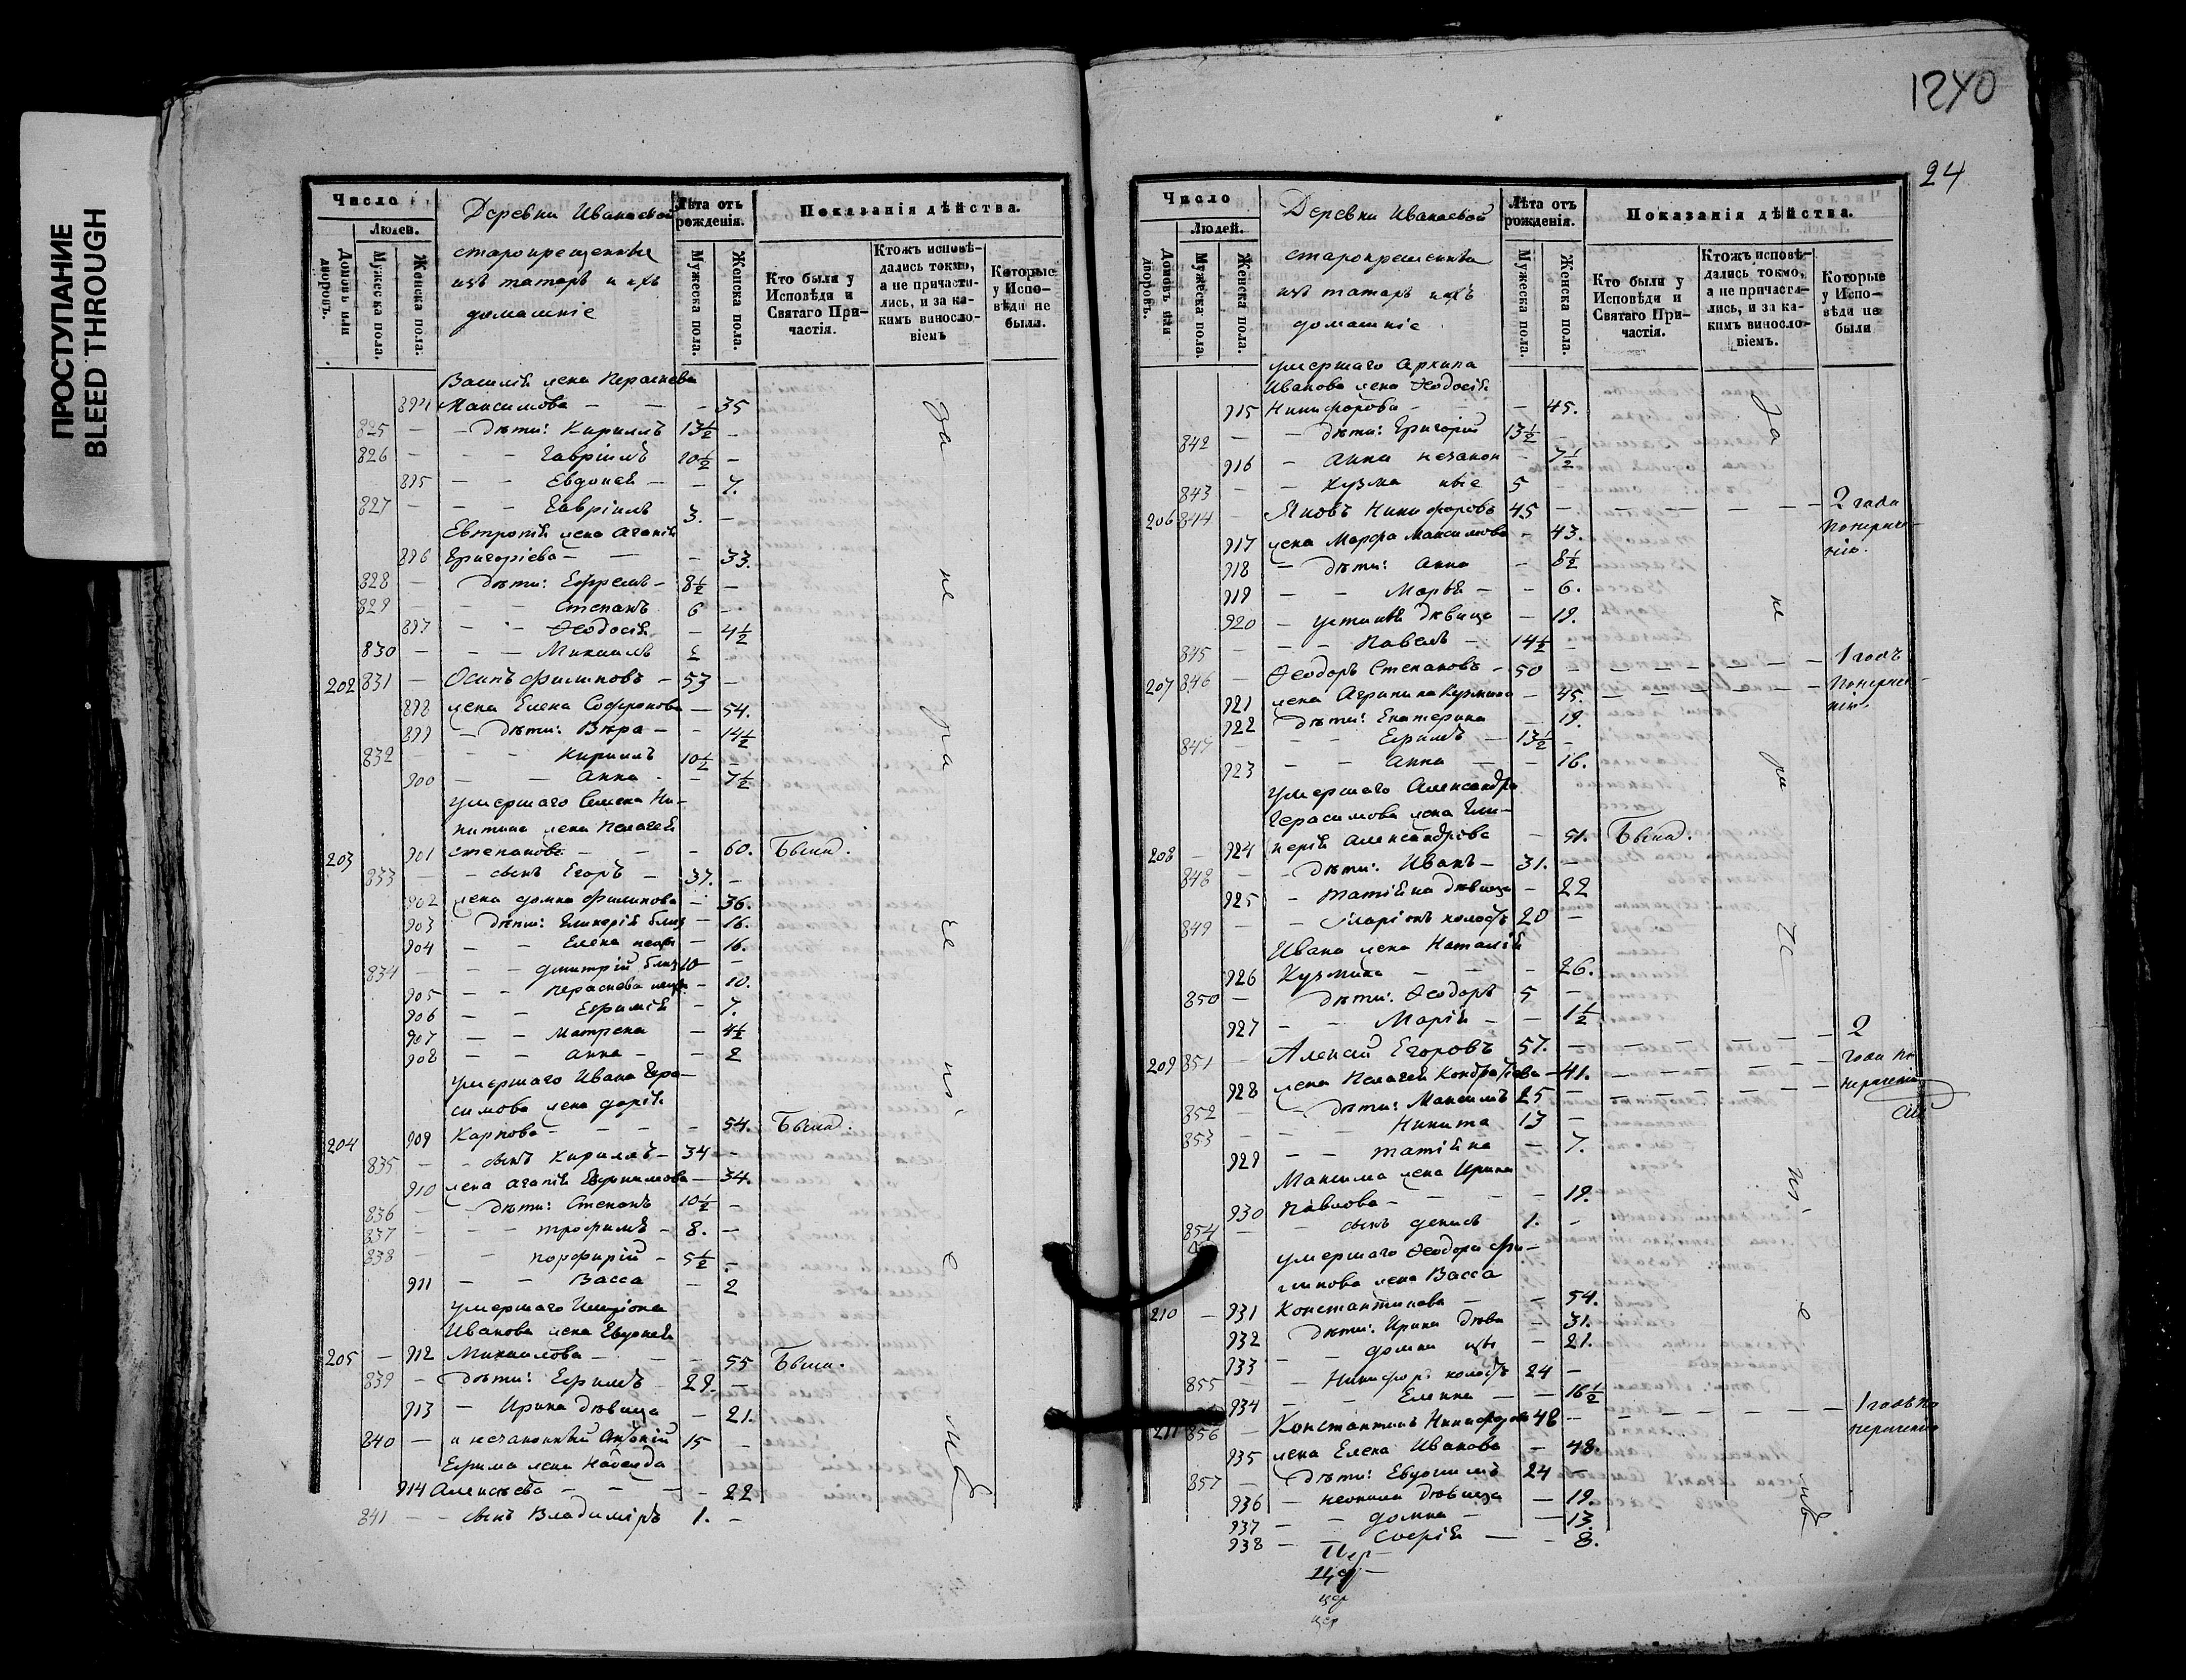 ПРОСТУПАНИЕ
BLEED THROUGH
1240
24
Число
Людей.
Домовъ или дворовъ.
Мужеска пола.
Женска пола.
Деревни Иванаевой
старокрещенные
изъ татаръ и ихъ
домашніе
Лѣта отъ рожденія.
Мужеска пола.
Женска пола.
Показанія дѣйства.
Кто были у Исповѣди и Святаго Причастія.
Ктожъ исповѣдались токмо, а не причастились, и за какимъ винословіемъ
Которые у Исповѣди не были.
894 Максимова — — — 35
825 — — дѣти: Кириллъ 13½ —
826 — — — Гавріилъ 10½ —
895 — — Евдокія — — 7.
827 — — — Гавріилъ 3. —
Евтропія жена Агафія
896 Григоріева — — — 33.
828 — дѣти: Ефремъ — 8½ —
829 — — — Степанъ 6 —
897 — — Ѳеодосія — 4½
830 — — — Михаилъ
202 831 — Осипъ Филиповъ — 53 —
898 жена Елена Софронова — 54.
899 — дѣти: Вѣра — — 14½
832 — — — Кириллъ 10½ —
900 — — Анна — — 7½
умершаго Семена Ни-
китина жена Пелагея
203 901 Степанова — — — 60. Была.
833 — — сынъ Егоръ — 37. —
902 жена Домна Филипова — 36.
903 дѣти: Гликерія близ — 16.
904 — — Елена нецы — 16.
834 — — — Дмитрій близ 10 —
905 — — Параскева нецы — 10.
906 — — Ефимія — 7.
907 — — Матрена — 4½
908 — — Анна — — 2
умершаго Ивана Гера-
симова жена Дарія
204 909 Карпова — — — 54. Была.
835 — — сынъ Кириллъ — 34 —
910 жена Агафія Ефимова — 34.
836 — — дѣти: Степанъ 10½ —
837 — — — Трофимъ — 8. —
838 — — Порфирій — 5½ —
911 — — Васса — 2
Иванова жена Евдокія
205 — 912 Михаилова — — — 55 Была.
839 — дѣти: Ефимъ 29. —
913 — Ирина дѣвица — 21.
840 — и незаконный Антоній 15 —
Ефима жена Надежда
914 Алексѣева — — — — 22
841 — — сынъ Владиміръ 1. —
За не ра че ні е мъ
Число
Людей.
Домовъ или дворовъ.
Мужеска пола.
Женска пола.
Деревни Иванаевой
старокрещенные
изъ татаръ и ихъ
домашніе
Лѣта отъ рожденія.
Мужеска пола.
Женска пола.
Показанія дѣйства.
Кто были у Исповѣди и Святаго Причастія.
Ктожъ исповѣдались токмо, а не причастились, и за какимъ винословіемъ.
Которые у Исповѣди не были
умершаго Архипа
Иванова жена Ѳеодосія
915 Никифорова — — 45.
842 — — дѣти: Григорій 13½
916 — Анна незакон — 7½
843 — — Кузма ные 5
206 844 — Яковъ Никифоровъ 45 — — — — — — 2 года
понераче-
нію.
917 жена Марфа Максимова — 43.
918 — дѣти: Анна — 8½
919 — — Марья — — 6.
920 — Устинія дѣвица — 19.
845 — — — Павелъ — 14½ —
207 846 — Ѳеодоръ Степановъ — 50 — — — — — 1 годъ
понераче-
нію.
921 жена Агрипина Кузмина — 45.
922 дѣти: Екатерина — 19.
847 — — — Ефимъ — 13½ —
923 — — Анна — — 16.
умершаго Александра
Герасимова жена Гли-
208 — 924 керія Александрова — 51. Была.
848 — — дѣти: Иванъ — 31. —
925 — Татіяна дѣвица — 22
849 — — Иларіонъ холостъ 20 —
Ивана жена Наталія
926 Кузмина — — — 26.
850 — дѣти: Ѳеодоръ 5 —
927 — — Марія — — 1½
209 851 — Алексій Егоровъ 57. — — — — — — 2
года по
нераченію
928 жена Пелагея Кондратьева — 41.
852 — — дѣти: Максимъ 25
853 — — — Никита 13 —
929 — — Татіяна — 7.
Максима жена Ирина
930 Павлова — — — — 19.
854 — — сынъ Денисъ 1. —
умершаго Ѳеодора Фи-
липова жена Васса
210 — 931 Константинова — — 54.
932 дѣти: Ирина дѣви — 31.
933 — — Домна цы — 21.
855 — — Никифоръ холостъ 24 —
934 — — Еленна — — 16½
211 856 — Константинъ Никифоровъ 48 — — — — — — 1 годъ по
нераченію
935 жена Елена Иванова — 48.
857 — — дѣти: Евдокимъ 24 —
936 — Неонила дѣвица — 19.
937 — — Домна — — 13
938 — — — 8.
За не ра че ні е мъ